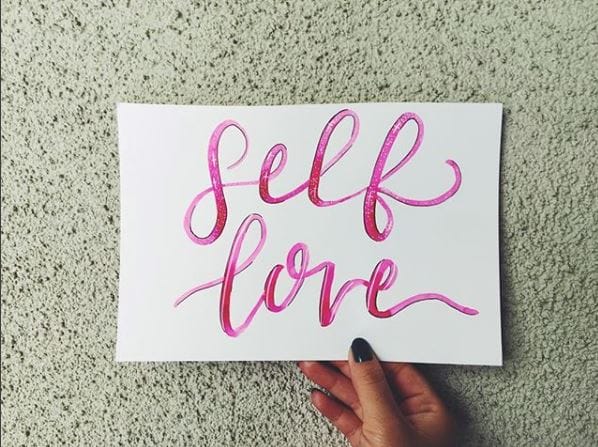 self
love